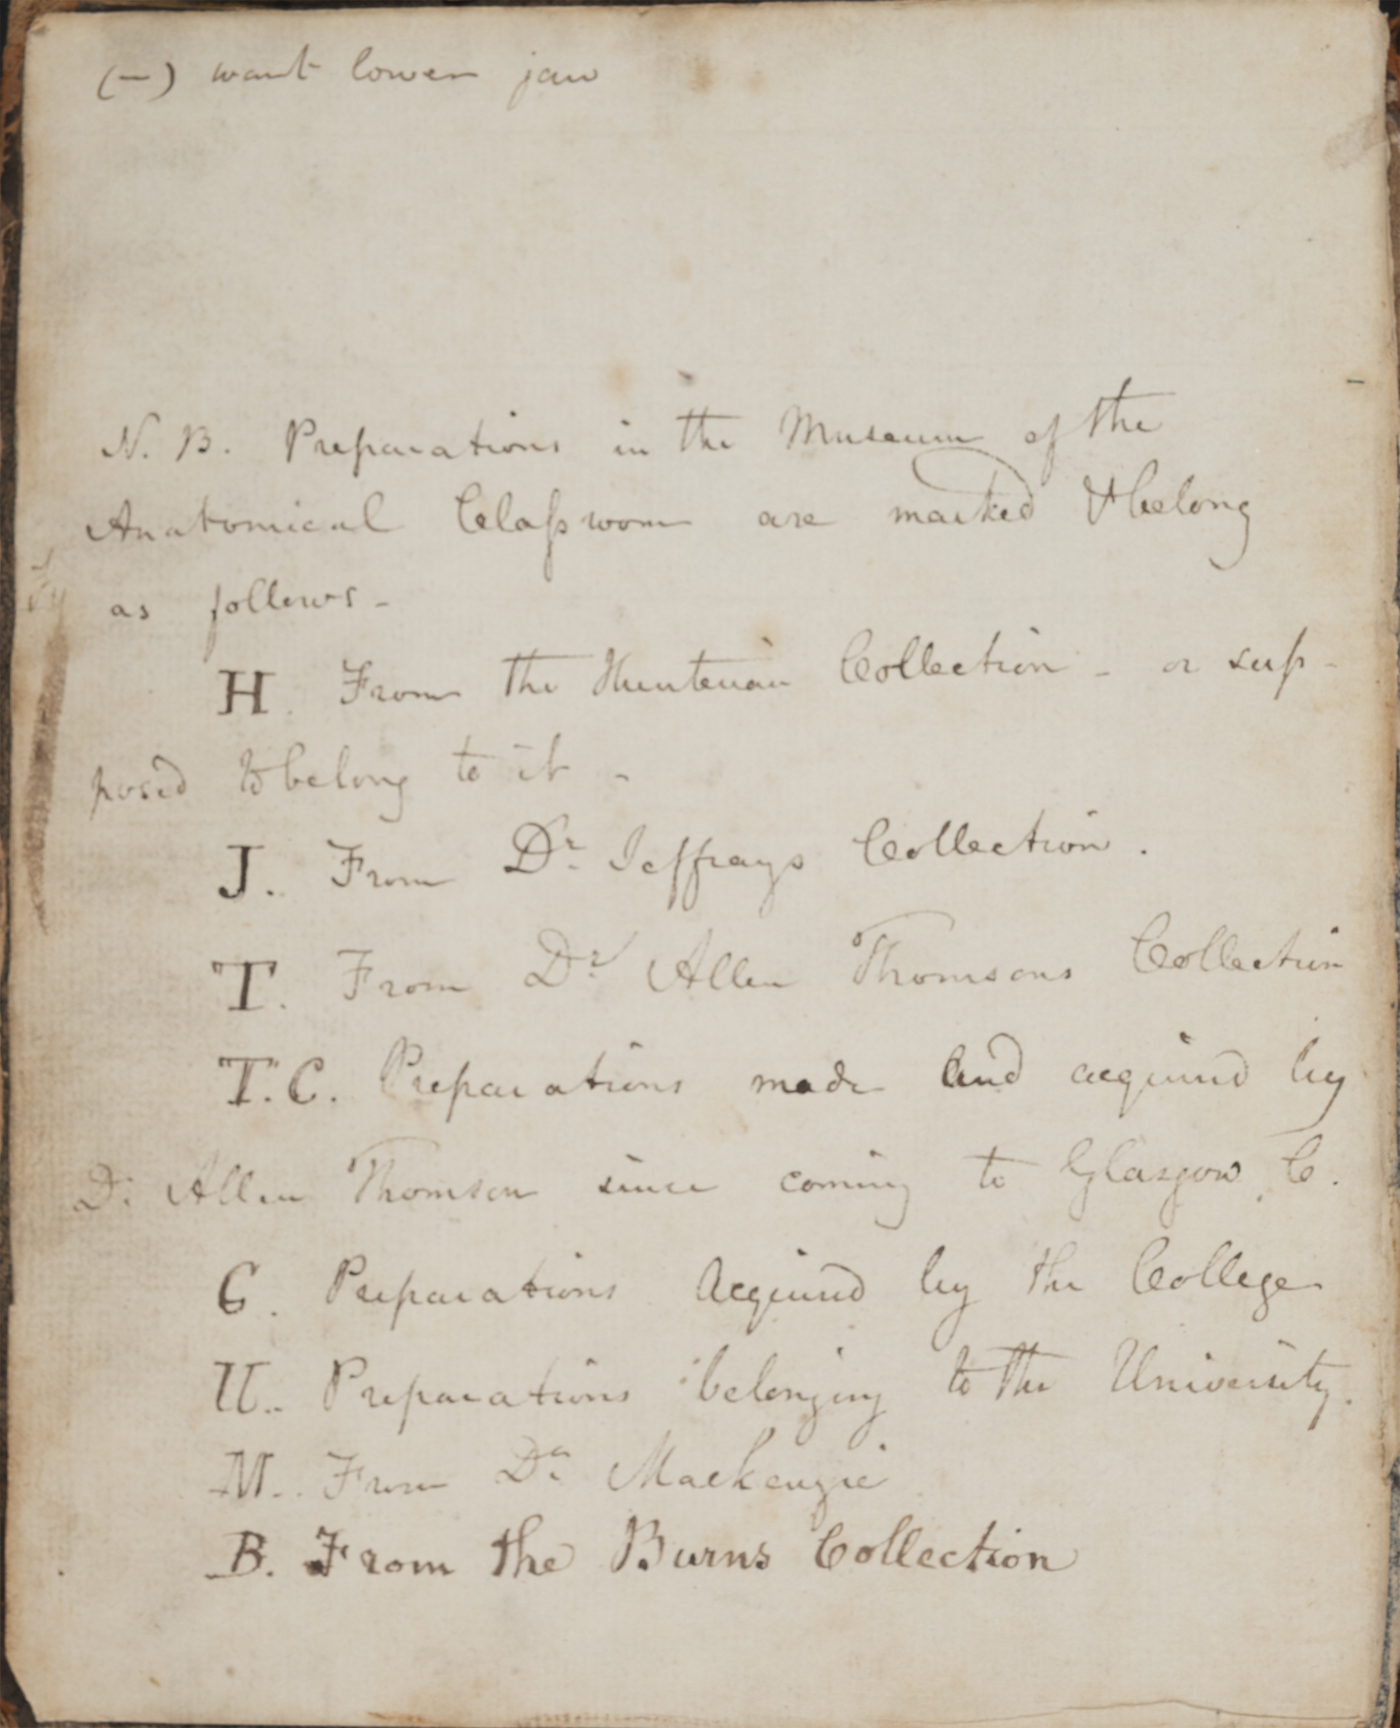 (—) want lower jaw
N. B. Preparations in the Museum of the
Anatomical Classroom are marked & belong
as follows -
H. From the Hunterian Collection - or sup-
posed to belong to it -
J. From Dr. Jeffrays Collection.
T. From Dr. Allen Thomsons Collection
T.C. Preparations made and acquired by
Dr Allen Thomson since coming to Glasgow C.
C. Preparations acquired by the College
U. Preparations belonging to the University.
M. From Dr. Mackenzie
B. From the Burns Collection